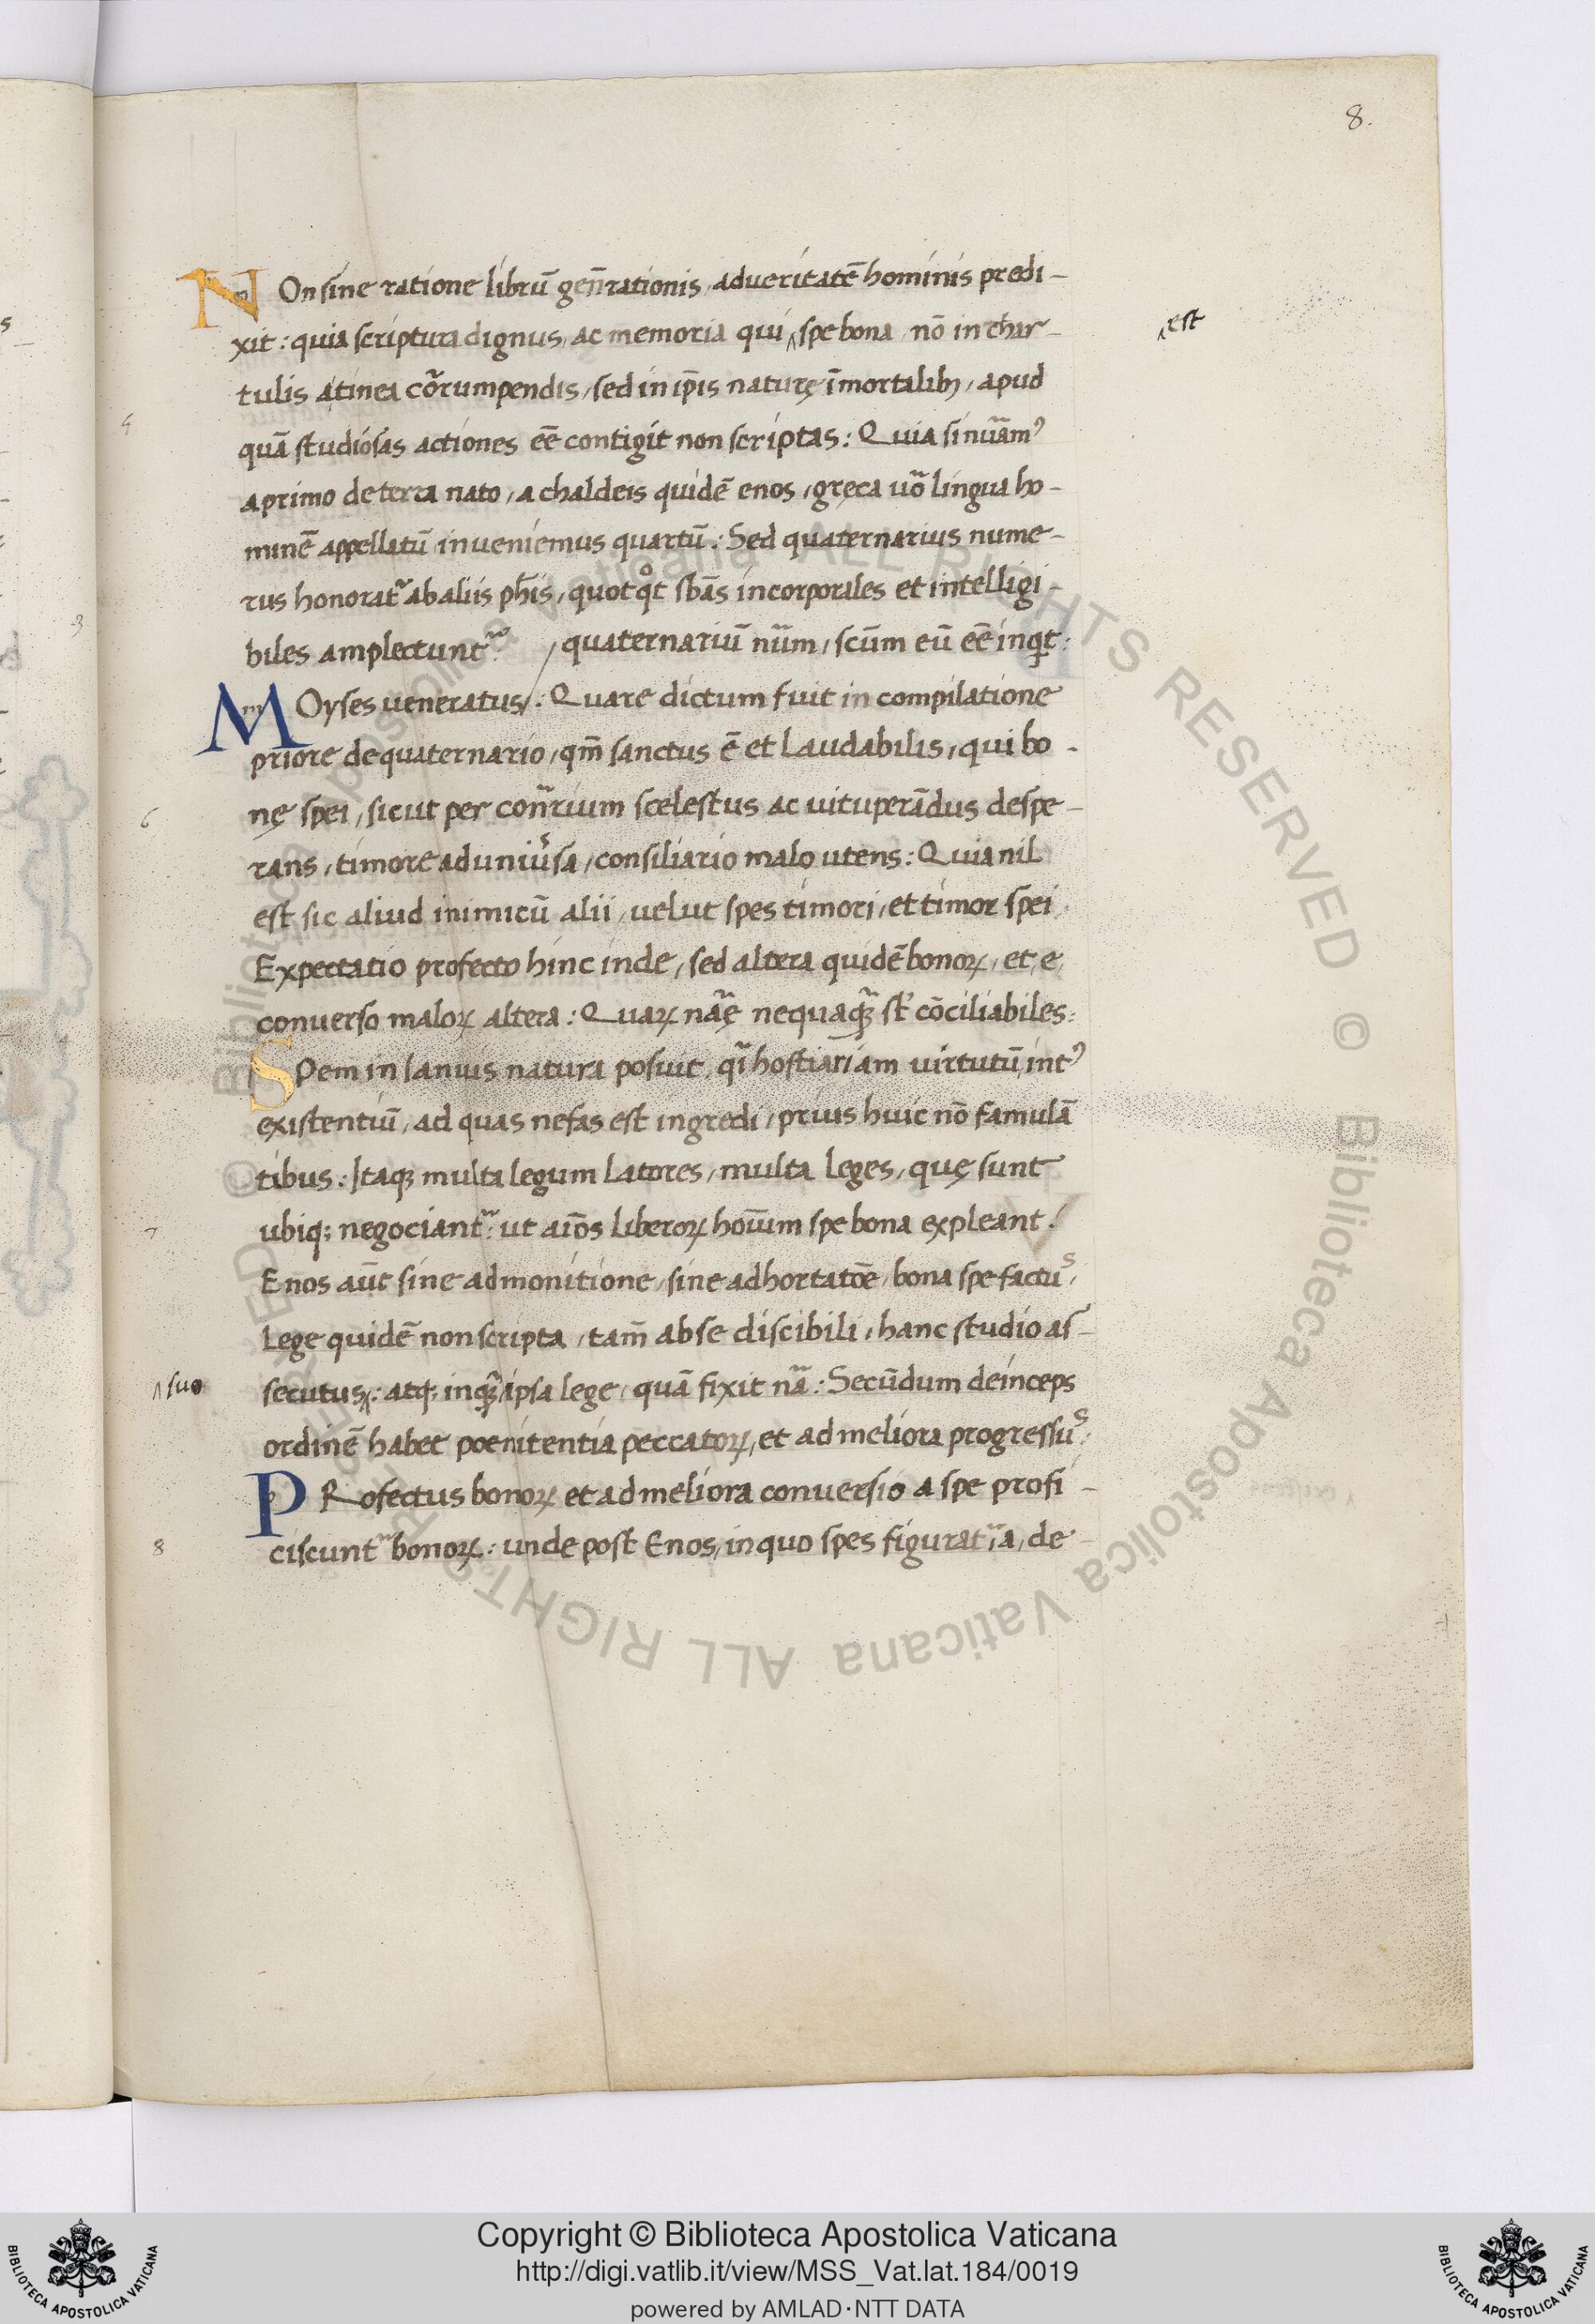 8.
NOn sine ratione librũ geñrationis, ad ueritatẽ hominis predi-
xit: quia scriptura dignus, ac memoria qui ‸ spe bona, nõ in char-
‸ est
tulis a tinea cõrumpendis, sed in ip̃is naturę ĩmortalibꝫ, apud
4
quã studiosas actiones eẽ contigit non scriptas: Quia si nũam᾽
a primo de terra nato, a chaldeis quidẽ enos, gręca uõ lingua ho-
minẽ appellatũ inueniemus quartũ: Sed quaternarius nume-
rus honorat᷑ ab aliis ph̃is, quotqͦt sb̃as incorporales et intelligi-
3
biles amplectunt᷑ / quaternariũ nũm, scũm eũ eẽ inqͥt:
MOyses ueneratus /: Quare dictum fuit in compilatione
priore de quaternario, qm̃ sanctus ẽ et laudabilis, qui bo-
6
nę spei, sicut per cont̃rium scelestus ac uituperãdus despe-
rans, timore ad uniũsa, consiliario malo utens: Quia nil
est sic aliud inimicũ alii, uelut spes timori, et timor spei,
Expectatio profecto hinc inde, sed altera quidẽ bonoꝝ, et, e,
conuerso maloꝝ altera: Quaꝝ nãę nequaqꝫ̃ st̃ cõciliabiles:
SPem in ianuis natura posuit, qĩ hostiãriam uirtutũ int᾽
existentiũ, ad quas nefas est ingredi, prius huic nõ famulã
tibus: Itaqꝫ multa legum latores, multa leges, quę sunt
7
ubiqꝫ negociant᷑ ut aĩos liberoꝝ hoĩum spe bona expleant:
Enos aũt sine admonitione, sine adhortatõe, bona spe factuˢ,
Lege quidẽ non scripta, tam̃ ab se discibili, hanc studio as-
‸ suo
secutus ‸: atqꝫ inqꝫ̃ ipsa lege, quã fixit nã: Secũdum deinceps
ordinẽ habet poenitentia peccatoꝝ, et ad meliora progressuˢ:
PRofectus bonoꝝ et ad meliora conuersio a spe profi-
8
ciscunt᷑ bonoꝝ: unde post Enos, in quo spes figurat᷑, a, de
© Biblioteca Apostolica Vaticana ALL RIGHTS RESERVED © Biblioteca Apostolica Vaticana ALL RIGHTS RESERVED
BIBLIOTECA APOSTOLICA VATICANA
Copyright © Biblioteca Apostolica Vaticana
http://digi.vatlib.it/view/MSS_Vat.lat.184/0019
powered by AMLAD·NTT DATA
BIBLIOTECA APOSTOLICA VATICANA